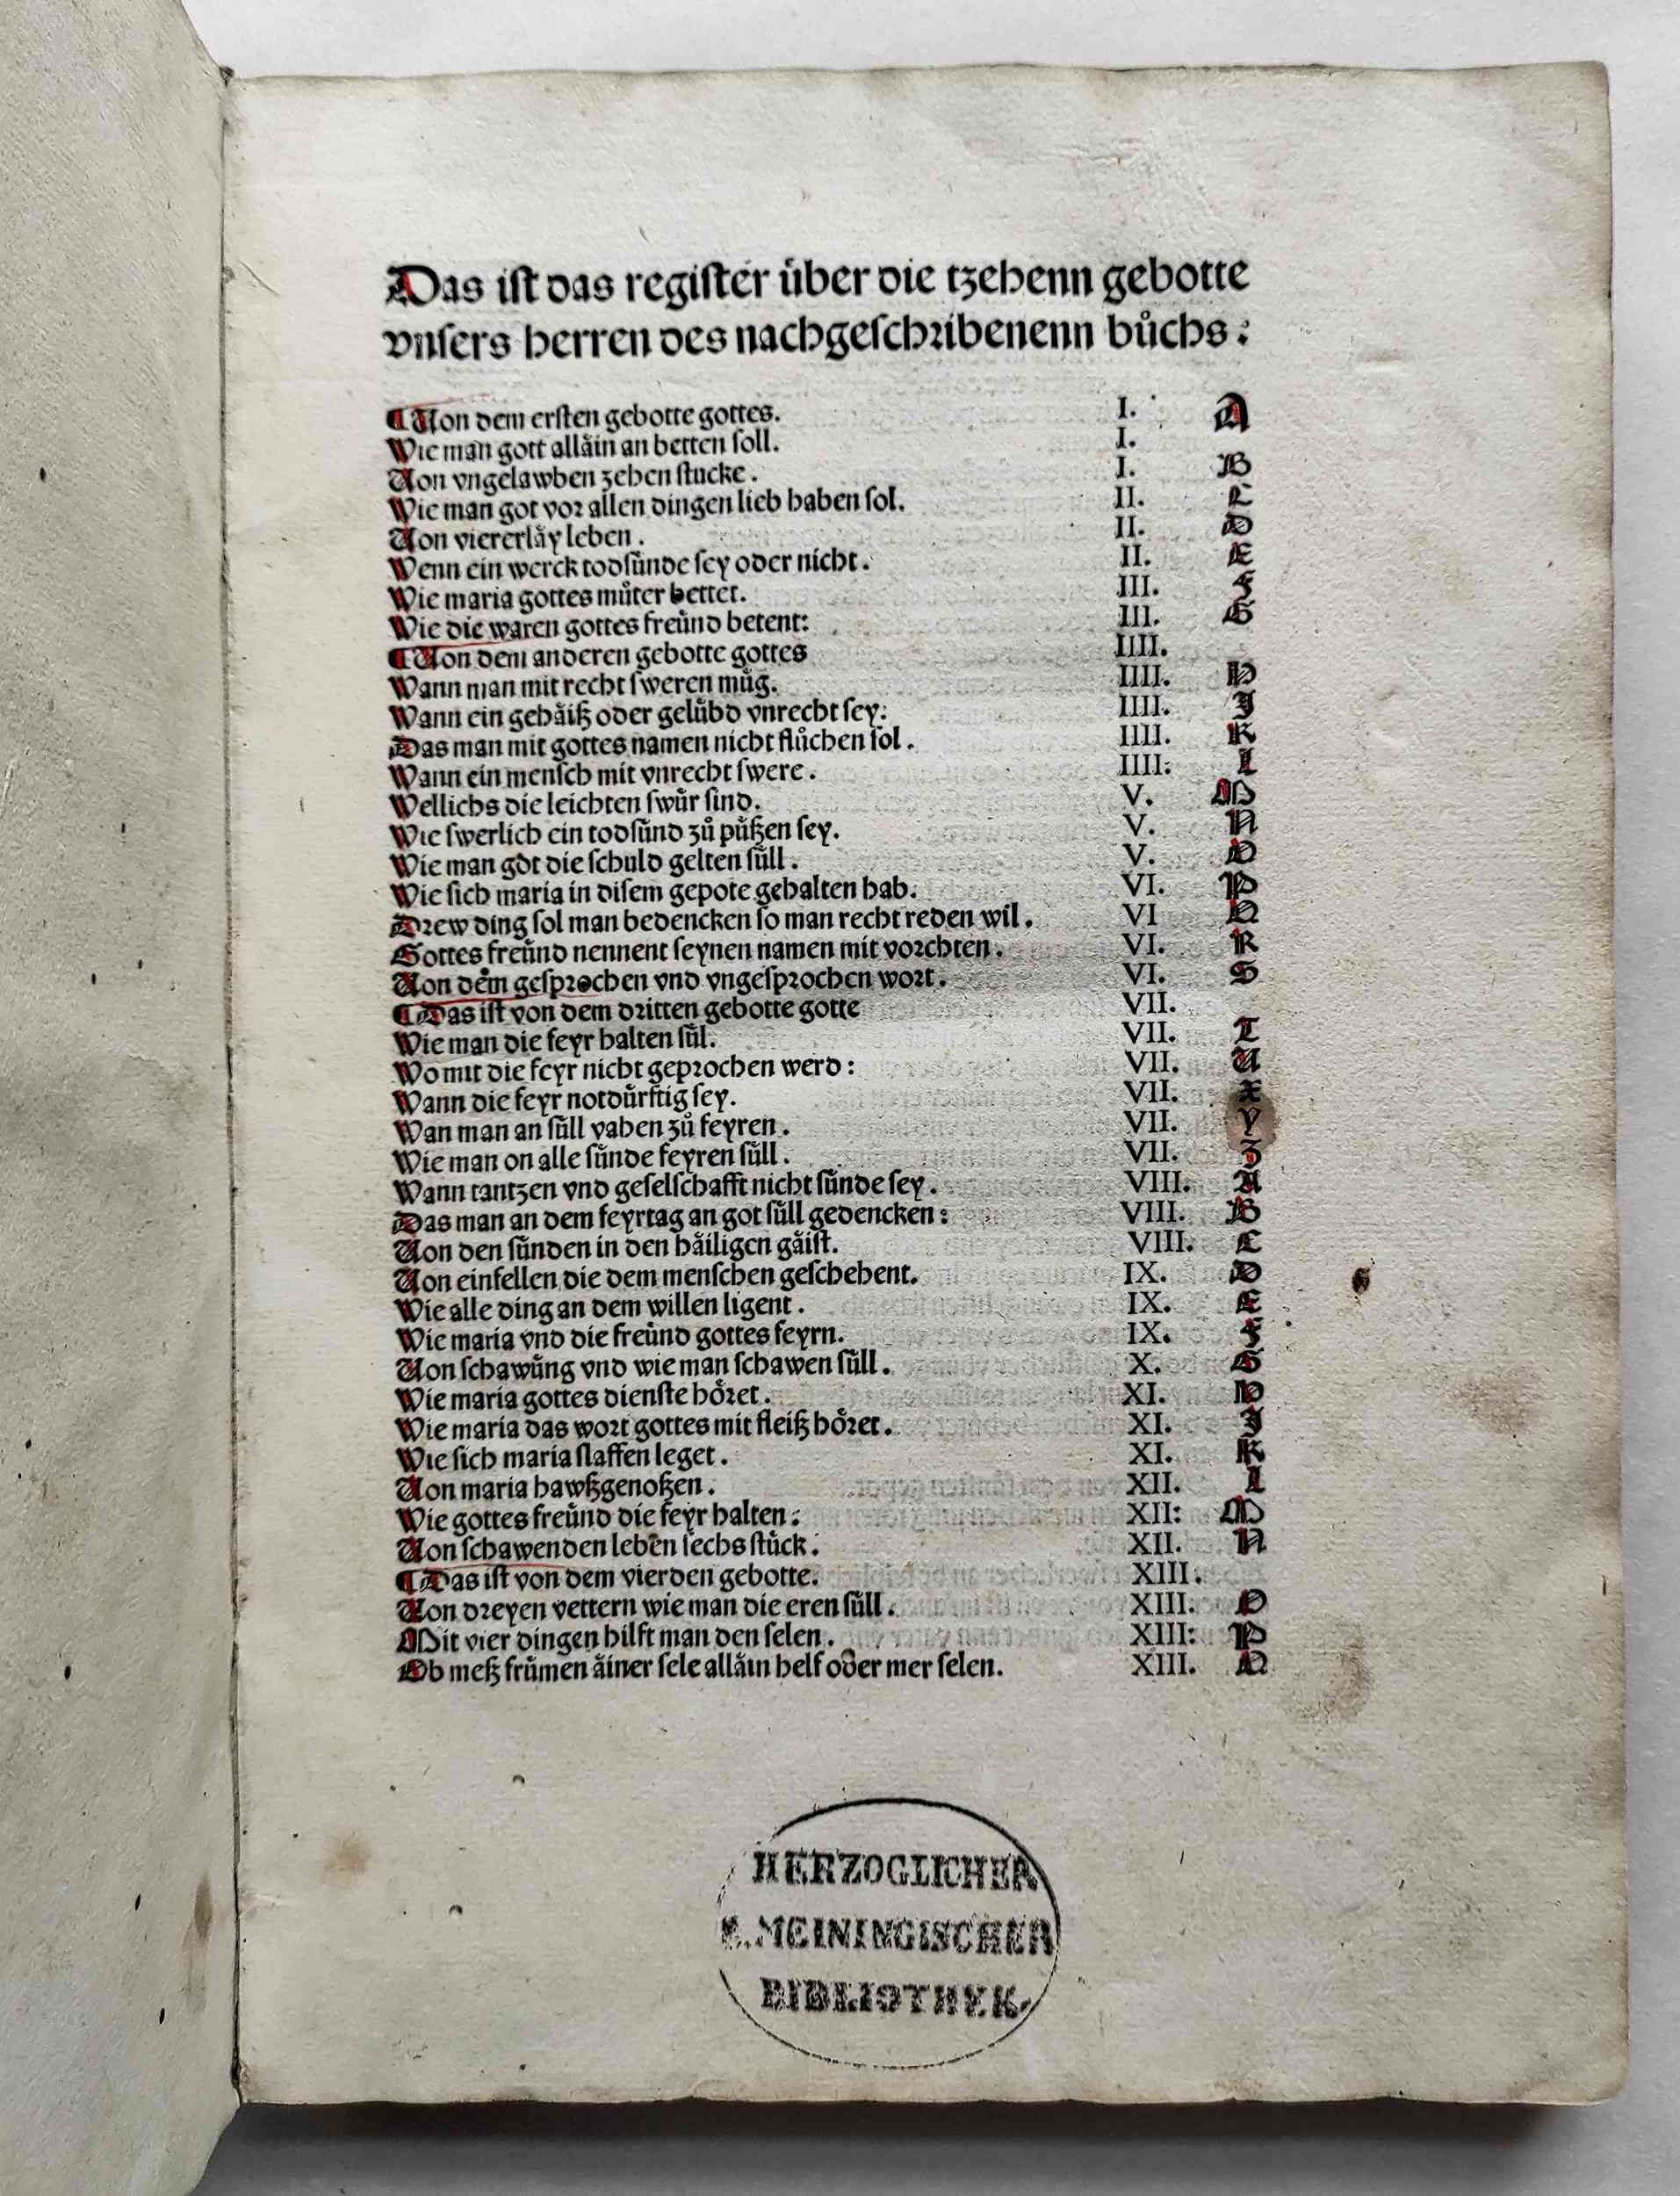 Das iſt das regiſter über die tzehenn gebotte
vnſers herren des nachgeſchribenenn bůchs:
¶ Von dem erſten gebotte gottes. I. A
Wie man gott allåin an betten ſoll. I.
Von vngelawben zehen ſtucke. I. B
Wie man got vor allen dingen lieb haben ſol. II. C
Von viererlåy leben. II. D
Wenn ein werck todſünde ſey oder nicht. II. E
Wie maria gottes můter bettet. III. F
Wie die waren gottes freünd betent: III. G
¶ Von dem anderen gebotte gottes IIII.
Wann man mit recht ſweren müg. IIII. H
Wann ein gehåiß oder gelübd vnrecht ſey: IIII. J
Das man mit gottes namen nicht flůchen ſol. IIII. K
Wann ein menſch mit vnrecht ſwere. IIII: L
Wellichs die leichten ſwür ſind. V. M
Wie ſwerlich ein todſünd zů půßen ſey. V. N
Wie man got die ſchuld gelten ſüll. V. O
Wie ſich maria in diſem gepote gehalten hab. VI. P
Drew ding ſol man bedencken ſo man recht reden wil. VI Q
Gottes freünd nennent ſeynen namen mit vorchten. VI. R
Von dem geſprochen vnd vngeſprochen wort. VI. S
¶ Das iſt von dem dritten gebotte gotte VII.
Wie man die feyr halten ſül. VII. T
Wo mit die feyr nicht geprochen werd: VII. U
Wann die feyr notdürftig ſey. VII. X
Wan man an ſüll vahen zů feyren. VII. Y
Wie man on alle ſünde feyren ſüll. VII. Z
Wann tantzen vnd geſelſchafft nicht ſünde ſey. VIII. A
Das man an dem feyrtag an got ſüll gedencken: VIII. B
Von den ſünden in den håiligen gåiſt. VIII. C
Von einfellen die dem menſchen geſchehent. IX. D
Wie alle ding an dem willen ligent. IX. E
Wie maria vnd die freünd gottes feyrn. IX. F
Von ſchawüng vnd wie man ſchawen ſüll. X. G
Wie maria gottes dienſte höret. XI. H
Wie maria das wort gottes mit fleiß höret. XI. J
Wie ſich maria ſlaffen leget. XI. K
Von maria hawßgenoßen. XII. L
Wie gottes freünd die feyr halten: XII: M
Von ſchawenden leben ſechs ſtück. XII. N
¶ Das iſt von dem vierden gebotte. XIII.
Von dreyen vettern wie man die eren ſüll. XIII. O
Mit vier dingen hilft man den ſelen. XIII: P
Ob meß frümen åiner ſele allåin helf oder mer ſelen. XIII. Q
HERZOGLICHER
S. MEININGISCHER
BIBLIOTHEK.